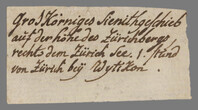 Grob Körniges Sienithgeschieb
auf der höhe des Zürichbergs
rechts dem Zürich See. 1. stund
von Zürich beÿ Wytikon.